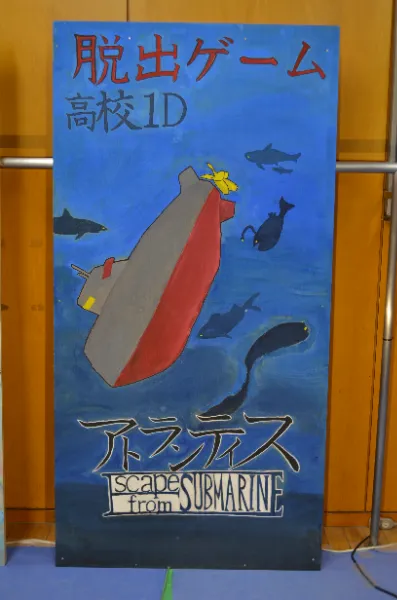 脱出ゲーム
高校1D
アトランティス
Escape
from SUBMARINE